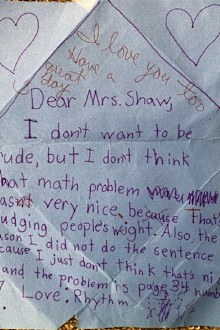 I love you too
Have a
great
day
Dear Mrs. Shaw,
I don't want to be
ude, but I don't think
hat math problem
asn't very nice, because That
udging people's weight. Also the
ason I did not do the sentence
cause I just don't think that's ni
and the problem is page 34 numbe
7. Love: Rhythm